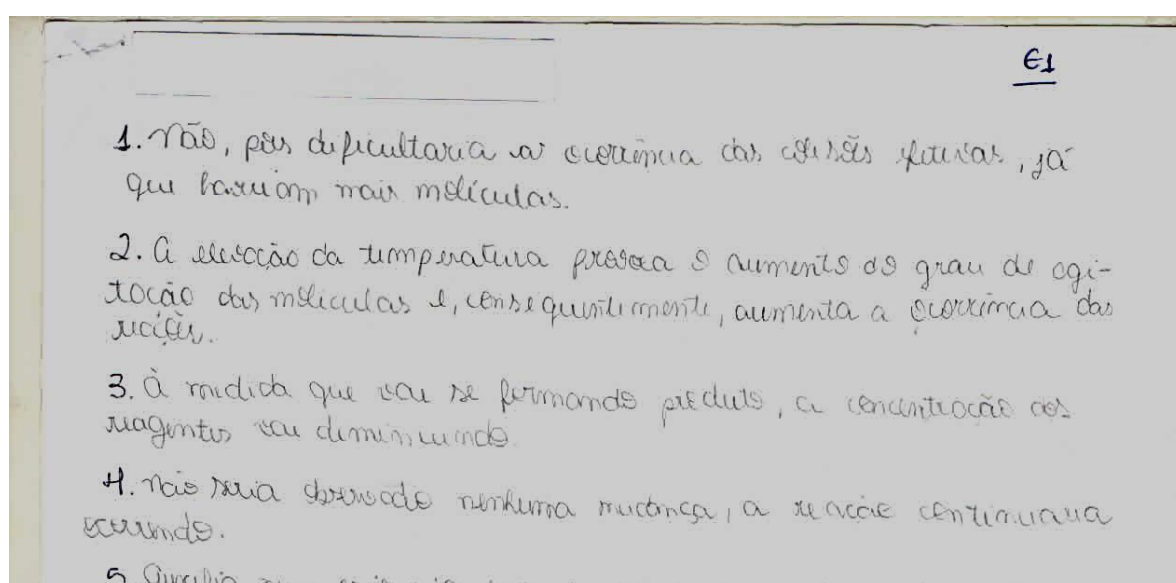 E1
1. Não, pois dificultaria a ocorrência das colisões efetivas, já
que haviam mais moléculas.
2. A elevação da temperatura provoca o aumento do grau de agi-
tação das moléculas e, consequentemente, aumenta a ocorrência das
reações.
3. À medida que vai se formando produto, a concentração dos
reagentes vai diminuindo.
4. Não seria observado nenhuma mudança, a reação continuaria
ocorrendo.
5. Auxilia